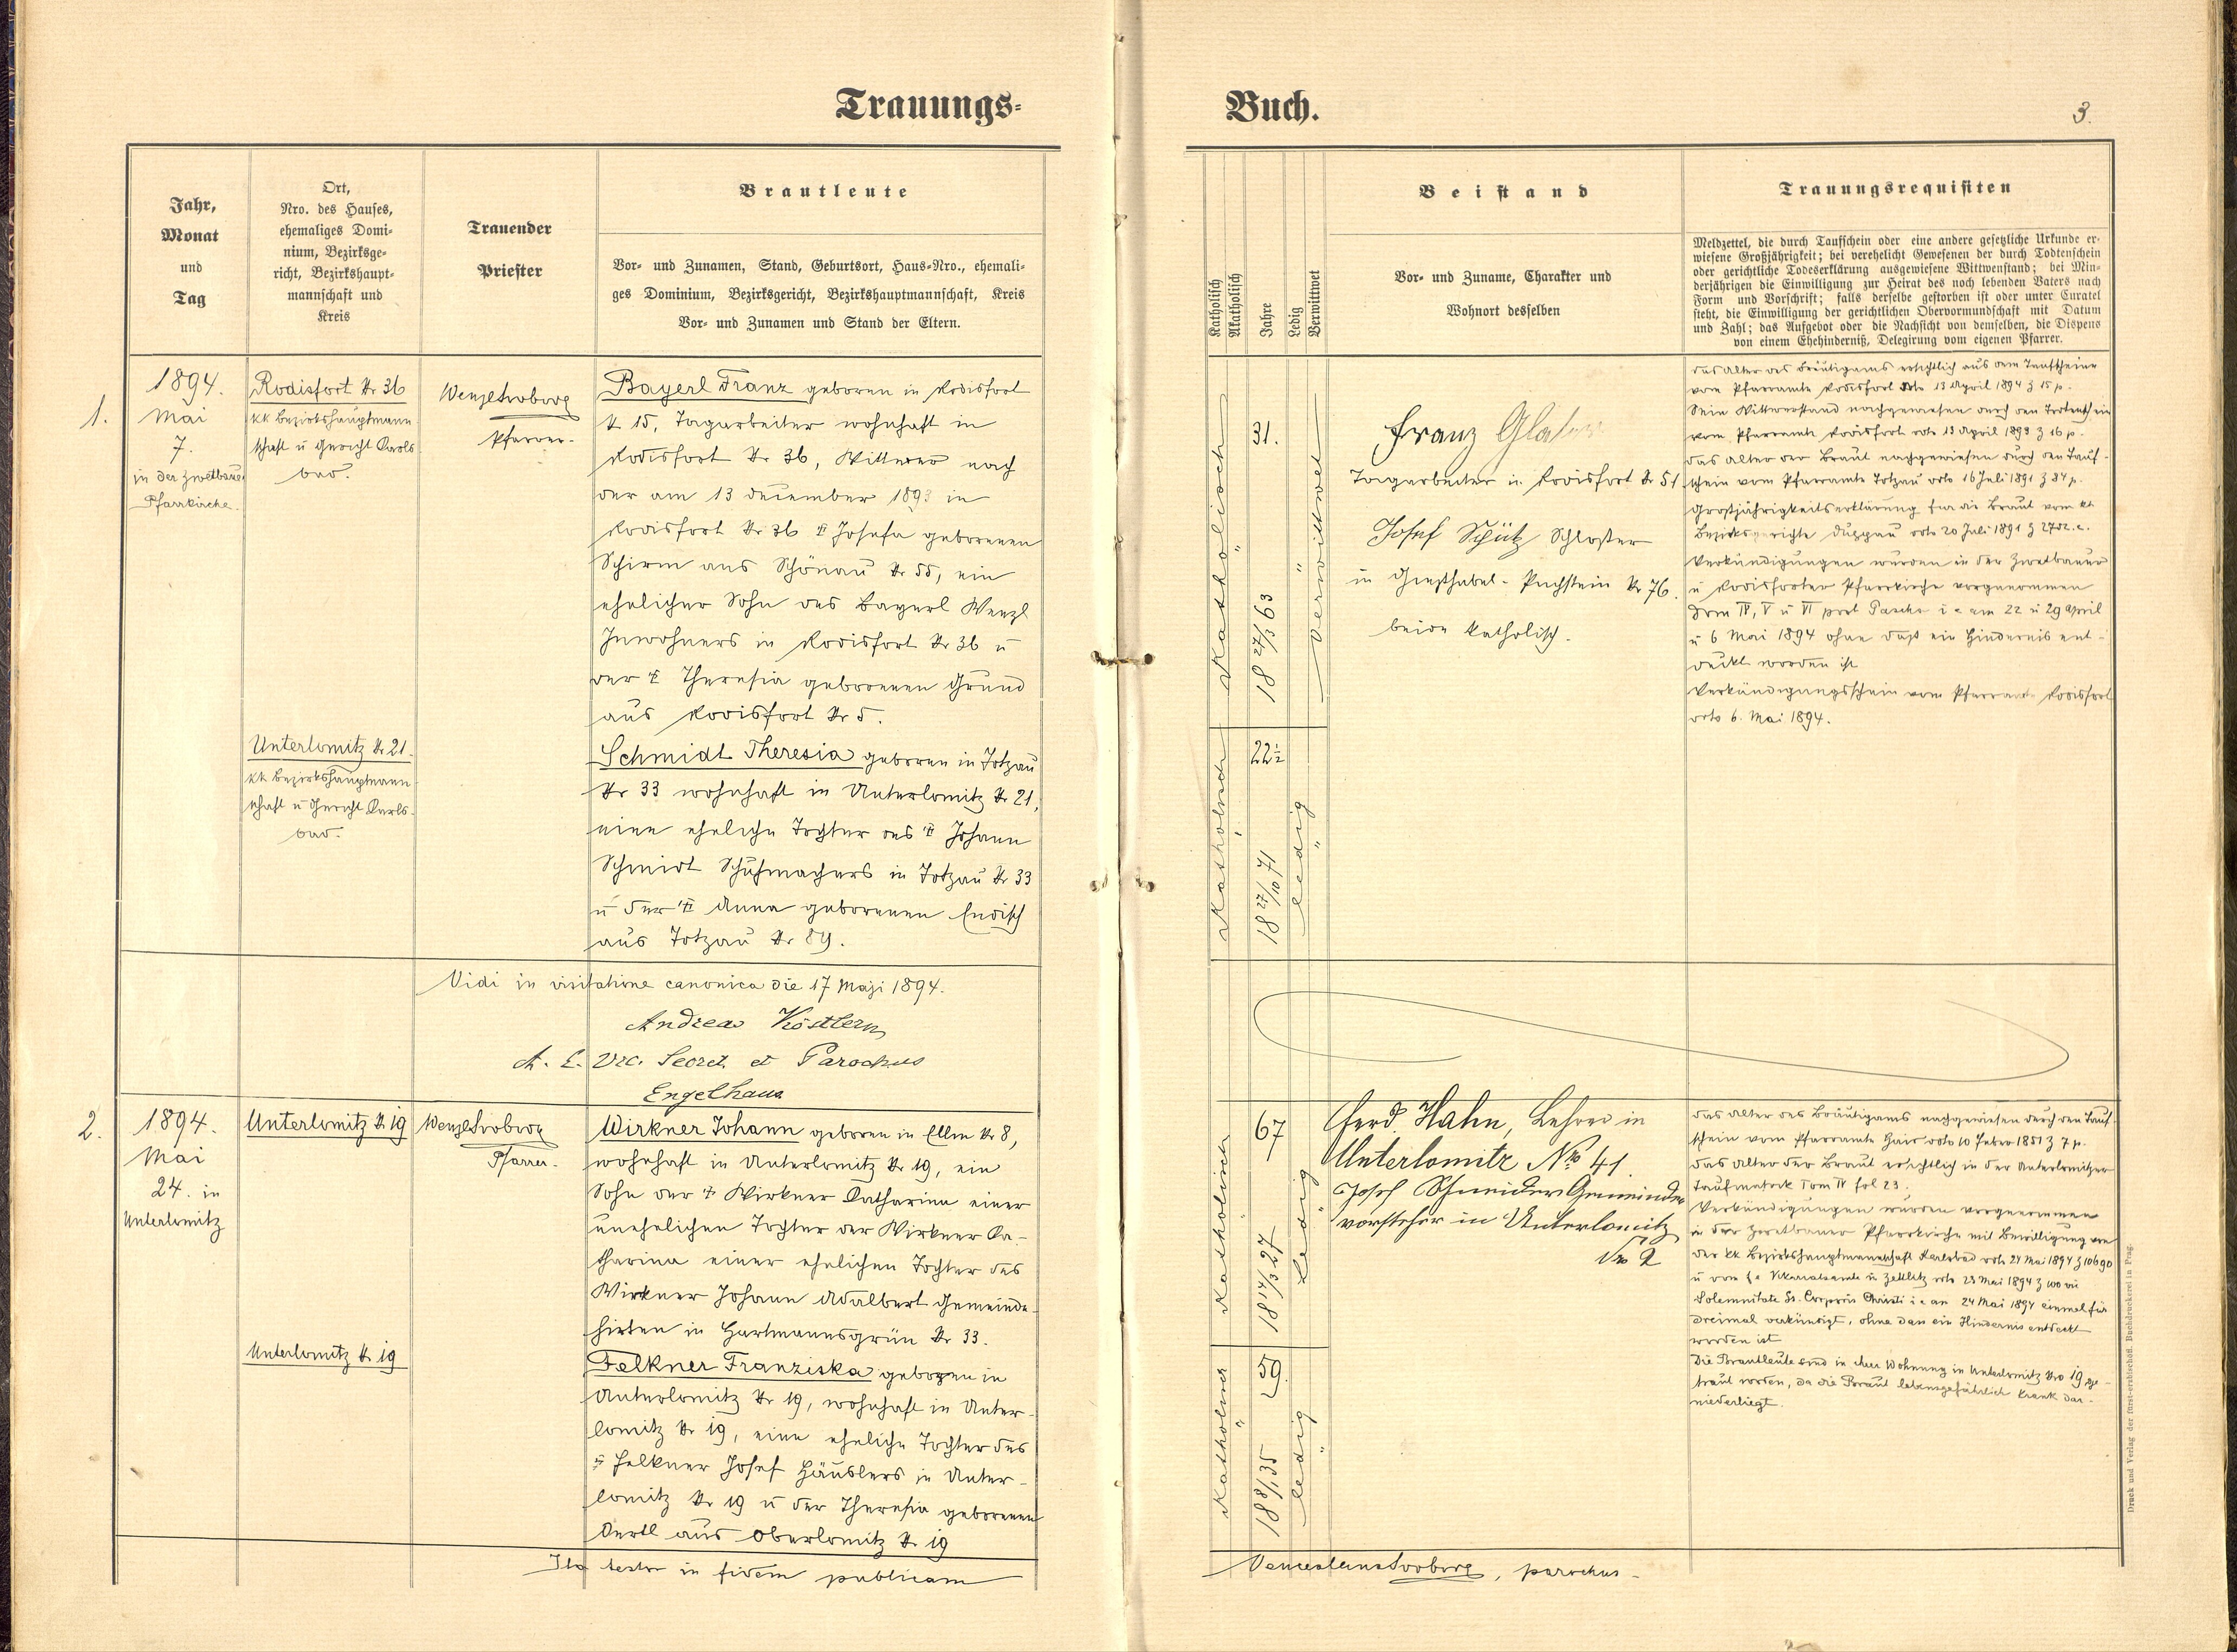 Trauungs-
Buch.
3.
Jahr,
Monat
und
Tag
Ort,
Nro. des Hauses,
ehemaliges Domi-
nium, Bezirksge-
richt, Bezirkshaupt-
mannschaft und
Kreis
Trauender
Priester
Brautleute
Vor- und Zunamen, Stand, Geburtsort, Haus-Nro., ehemali-
ges Dominium, Bezirksgericht, Bezirkshauptmannschaft, Kreis
Vor- und Zunamen und Stand der Eltern.
Katholisch
Akatholisch
Jahre
Ledig
Verwittwet
Beistand
Vor- und Zuname, Charakter und
Wohnort desselben
Trauungsrequisiten
Meldzettel, die durch Taufschein oder eine andere gesetzliche Urkunde er-
wiesene Großjährigkeit; bei verehelicht Gewesenen der durch Todtenschein
oder gerichtliche Todeserklärung ausgewiesene Wittwenstand; bei Min-
derjährigen die Einwilligung zur Heirat des noch lebenden Vaters nach
Form und Vorschrift; falls derselbe gestorben ist oder unter Curatel
steht, die Einwilligung der gerichtlichen Obervormundschaft mit Datum
und Zahl; das Aufgebot oder die Nachsicht von demselben, die Dispens
von einem Ehehinderniß, Delegirung vom eigenen Pfarrer.
1.
1894.
Mai
7.
in der Zwetbauer
Pfarrkirche.
Rodisfort Nr 36
kk Bezirkshauptmann
schaft u Gericht Karls
bad.
Unterlomitz Nr 21.
kk Bezirkshauptmann
schaft u Gericht Karls-
bad.
Wenzel
Pfarrer.
Bayerl Franz geboren in Rodisfort
Nr 15, Tagarbeiter wohnhaft in
Rodisfort Nr 36, Wittwer nach
der am 13 December 1893 in
Rodisfort Nr 36 † Josefa geborenen
Schirm aus Schönau Nr 55, ein
ehelicher Sohn des Bayerl Wenzl
Inwohners in Rodisfort Nr 36 u
der † Theresia geborenen Grund
aus Rodisfort Nr 5.
Schmidt Theresia geboren in Totzau
Nr 33 wohnhaft in Unterlomitz Nr 21,
eine eheliche Tochter des † Johann
Schmidt Schuhmachers in Totzau Nr 33
u der † Anna geborenen Endisch
aus Totzau Nr 89.
Katholisch "
31.
18 27/3 63
"
Verwittwet
Katholisch "
22½
18 27/10 71
ledig "
Franz Glaser
Tagarbeiter in Rodisfort Nr 51
Josef Schütz Schlosser
in Gießhübel-Puchstein Nr 76.
beide katholisch.
das Alter des Bräutigams ersichtlich aus dem Taufscheine
vom Pfarramte Rodisfort dto 13 April 1894 Z 15 p.
Sein Wittwerstand nachgewiesen durch den Todtenschein
vom Pfarramte Rodisfort dto 13 April 1893 Z 16 p.
das Alter der Braut nachgewiesen durch den Tauf-
schein vom Pfarramte Totzau dto 16 Juli 1891 Z 84 p.
Großjährigkeitserklärung für die Braut vom kk
Bezirksgerichte Duppau dto 20 Juli 1891 Z 2782.c.
Verkündigungen wurden in der Zwetbauer
u Rodisforter Pfarrkirche vorgenommen
Dom IV, V u VI post Pascha i e am 22 u 29 April
u 6 Mai 1894 ohne daß ein Hindernis ent-
deckt worden ist
Verkündigungsschein vom Pfarramte Rodisfort
dto 6. Mai 1894.
Vidi in visitatione canonica die 17 Maji 1894.
Andreas Köstlern
A. E. Vic. Secret. et Parochus
Engelhaus
2.
1894.
Mai
24. in
Unterlomitz
Unterlomitz Nr 19
Unterlomitz Nr 19
Wenzel
Pfarrer.
Wirkner Johann geboren in Ellm Nr 8,
wohnhaft in Unterlomitz Nr 19, ein
Sohn der † Wirkner Catharina einer
unehelichen Tochter der Wirkner Ca-
tharina einer ehelichen Tochter des
Wirkner Johann Adalbert Gemeinde-
hirten in Hartmannsgrün Nr 33.
Felkner Franziska geboren in
Unterlomitz Nr 19, wohnhaft in Unter-
lomitz Nr 19, eine eheliche Tochter des
† Felkner Josef Häuslers in Unter-
lomitz Nr 19 u der Theresia geborenen
Oertl aus Oberlomitz Nr 19
Katholisch
67
18 14/3 27
Ledig "
Katholisch "
59.
18 8/1 35
ledig "
Ferd. Hahn, Lehrer in
Unterlomitz Nro 41.
Josef Schneider Gemeinde
vorsteher in Unterlomitz
Nro 2
das Alter des Bräutigams nachgewiesen durch den Tauf-
schein vom Pfarramte dto 10 1851 Z 7 p.
das Alter der Braut ersichtlich in der Unterlomitzer
Taufmatrik Tom IV fol 23.
Verkündigungen wurden vorgenommen
in der Zwetbauer Pfarrkirche mit Bewilligung von
der kk Bezirkshauptmannschaft Karlsbad dto 24 Mai 1894 Z 10690
u vom Vikariatsamte in Zettlitz dto 23 Mai 1894 Z
Solemnitate Ss. Corporis Christi i e an 24 Mai 1894 einmal für
dreimal verkündigt, ohne dass ein Hindernis entdeckt
worden ist
Die Brautleute sind in ihrer Wohnung in Unterlomitz Nro 19 ge-
traut worden, da die Braut lebensgefährlich krank dar-
niederliegt.
Ita testor in fidem publicam
Venceslaus , parochus.
Druck und Verlag der fürst-erzbischöfl. Buchdruckerei in Prag.